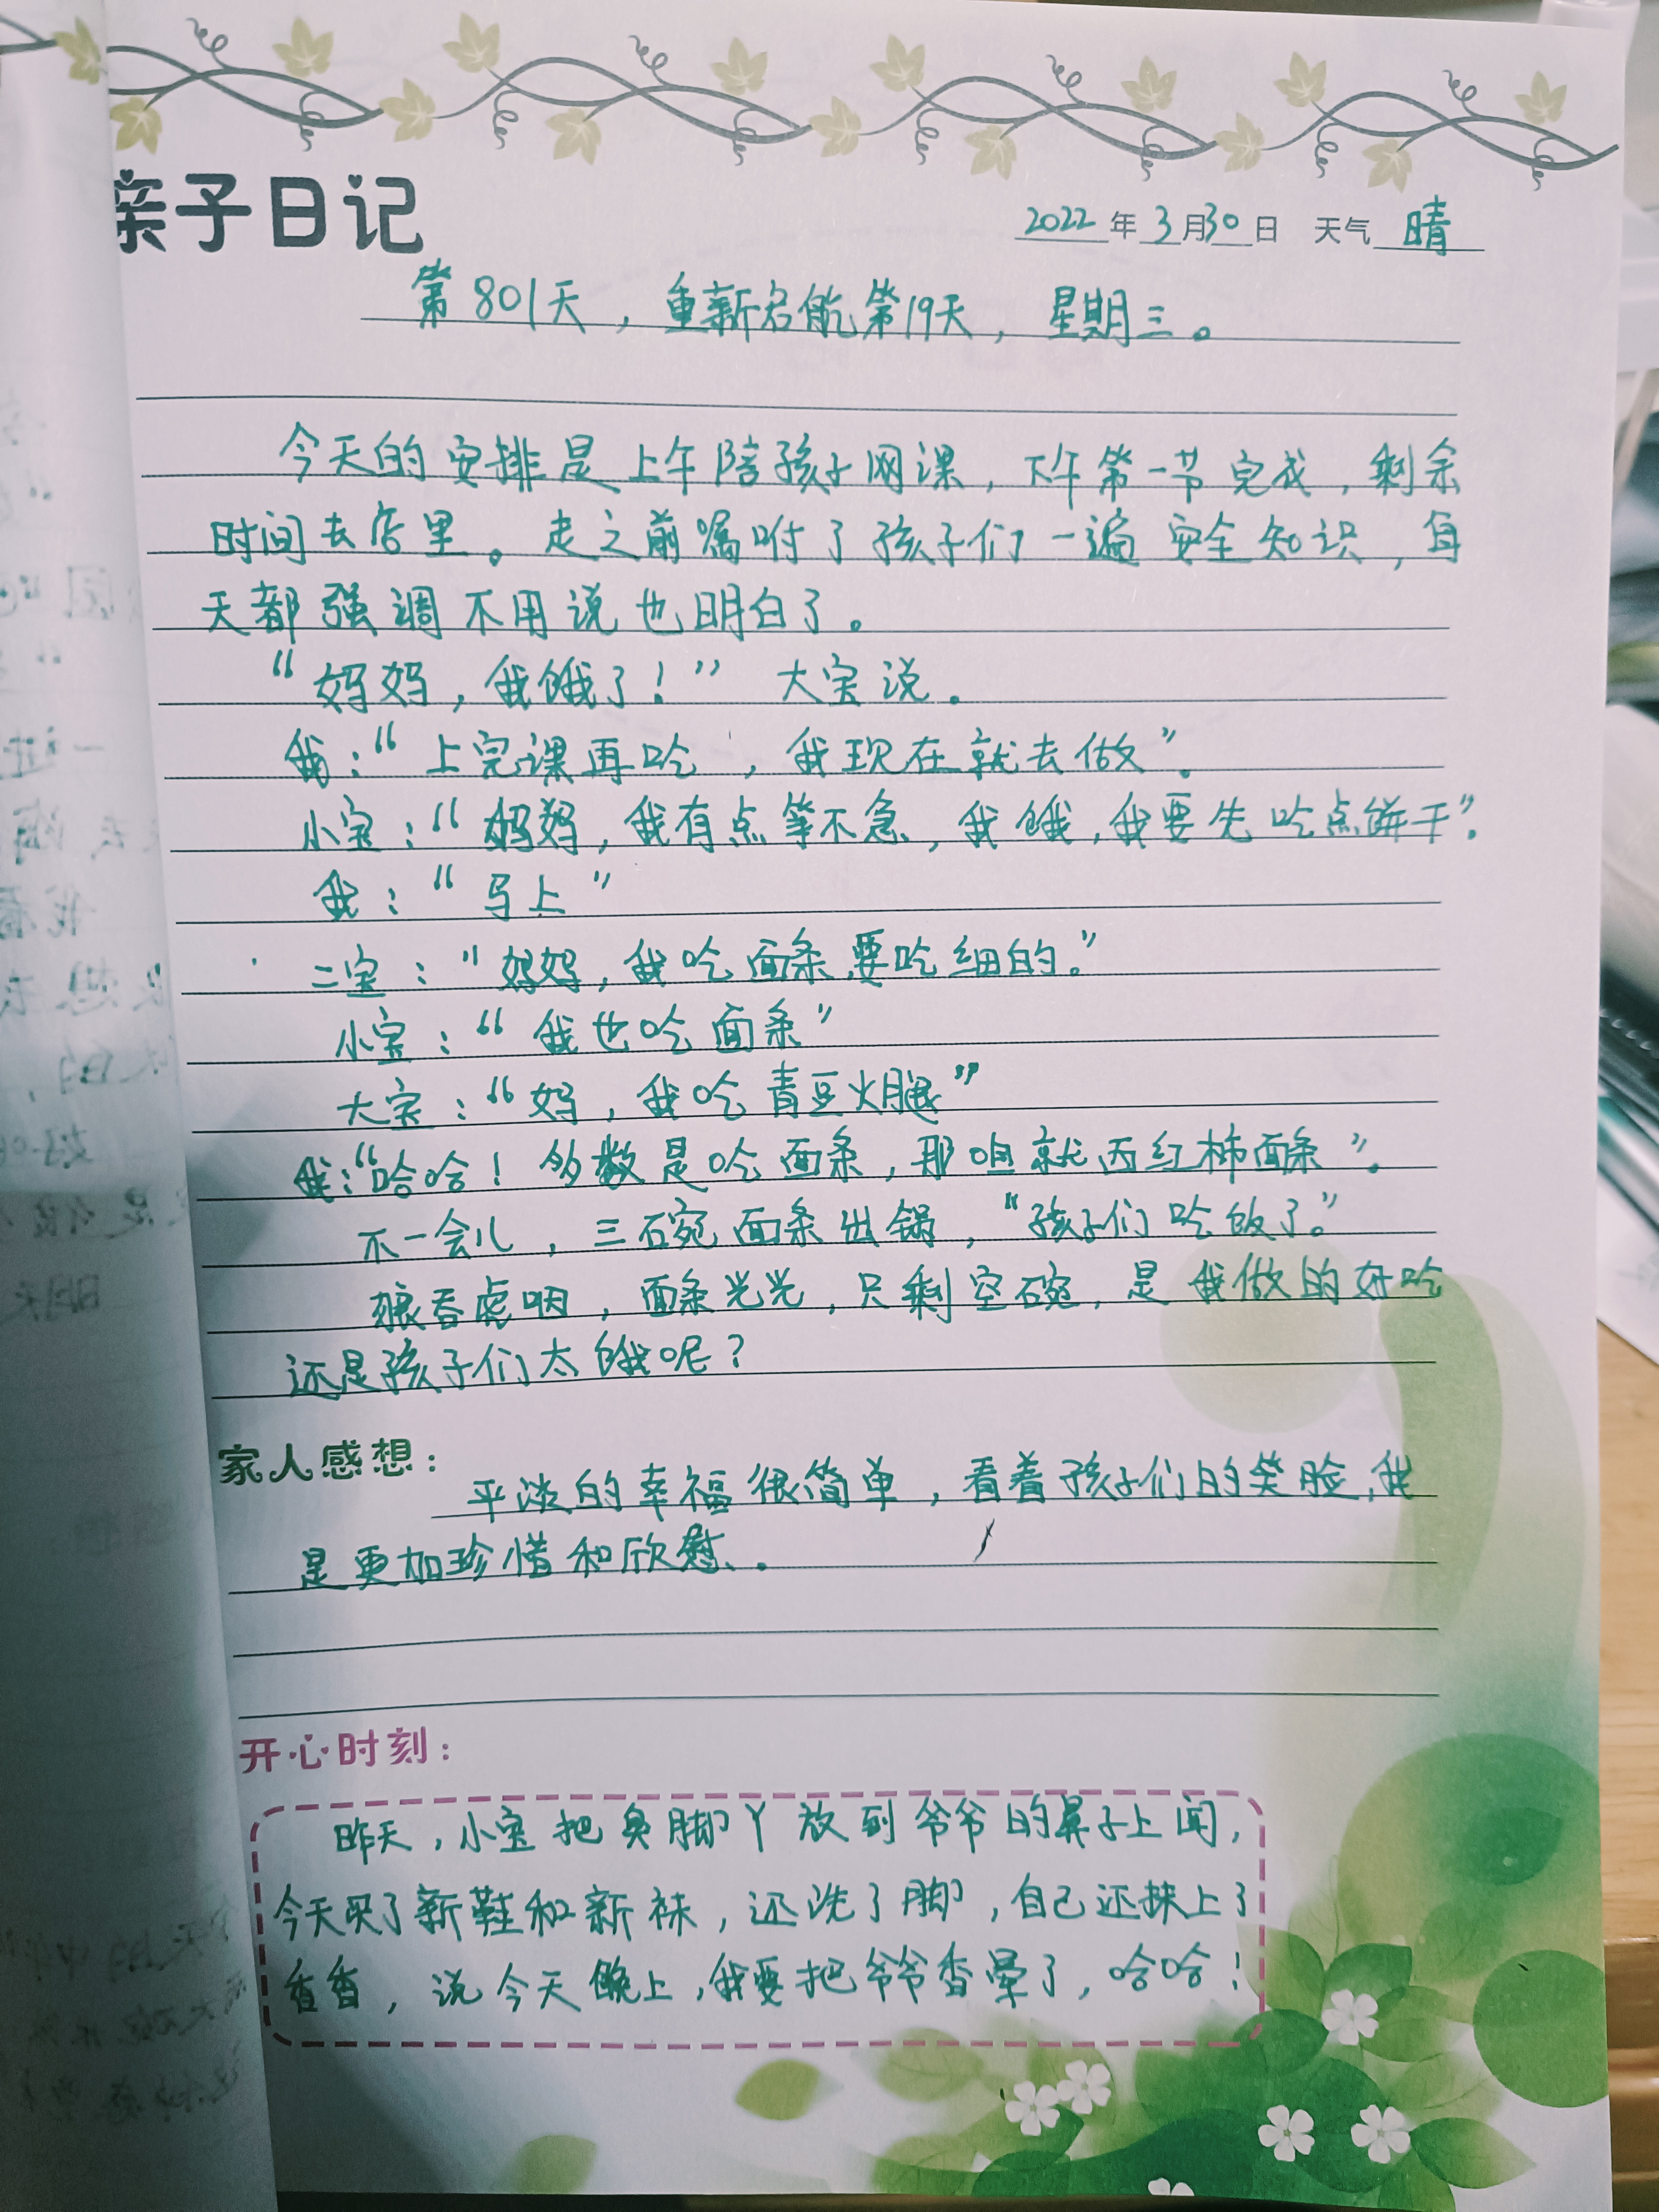 亲子日记
2022年3月30日 天气 晴
第801天，重新启航第19天，星期三。
今天的安排是上午陪孩子网课，下午第一节完成，剩余
时间去店里。走之前嘱咐了孩子们一遍安全知识，每
天都强调不用说也明白了。
“妈妈，我饿了！” 大宝说。
我：“上完课再吃，我现在就去做”。
小宝：“妈妈，我有点等不急，我饿，我要先吃点饼干”。
我：“马上”
二宝：“妈妈，我吃面条，要吃细的。”
小宝：“我也吃面条”
大宝：“妈，我吃青豆火腿”
我：“哈哈！多数是吃面条，那咱就西红柿面条”。
不一会儿，三碗面条出锅，“孩子们吃饭了。”
狼吞虎咽，面条光光，只剩空碗，是我做的好吃
还是孩子们太饿呢？
家人感想：
平淡的幸福很简单，看着孩子们的笑脸，我
是更加珍惜和欣慰、。
开心时刻：
昨天，小宝把臭脚丫放到爷爷的鼻子上闻，
今天买了新鞋和新袜，还洗了脚，自己还抹上了
香香，说今天晚上，我要把爷爷香晕了，哈哈！